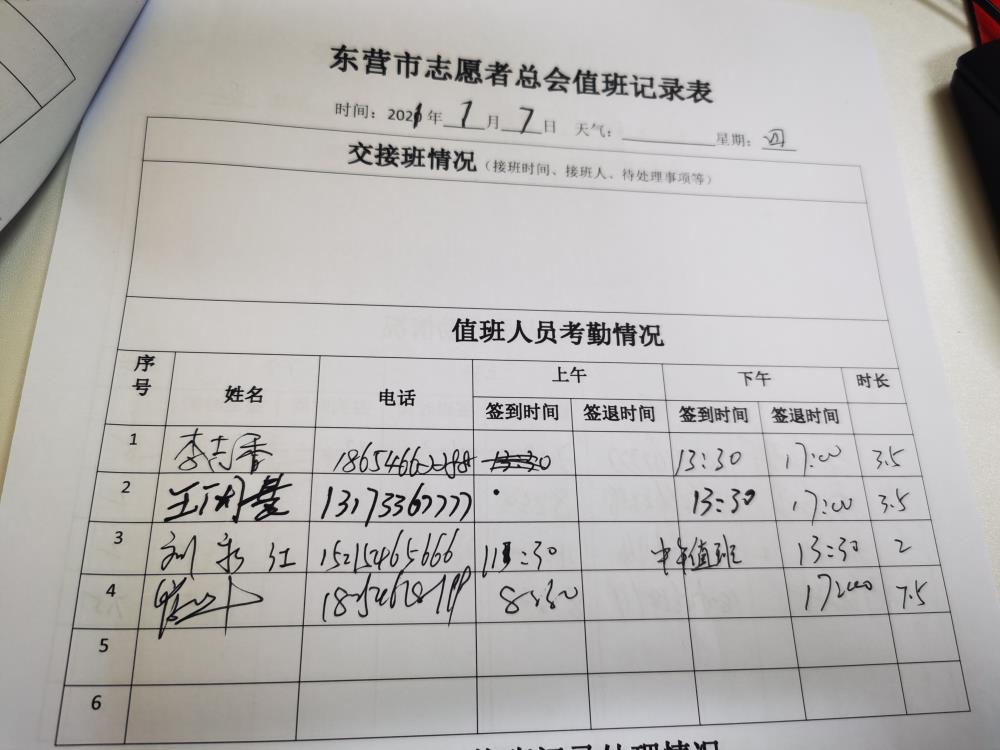 东营市志愿者总会值班记录表
时间：2021年 1 月 7 日 天气： 星期：四
交接班情况（接班时间、接班人、待处理事项等）
值班人员考勤情况
序号 姓名 电话 上午 下午 时长
签到时间 签退时间 签到时间 签退时间
1 李志香 13:30 13:30 17:00 3.5
2 13:30 17:00 3.5
3 刘 江 15215465666 11:30 中午值班 13:30 2
4 8:30 17:00 7.5
5
6